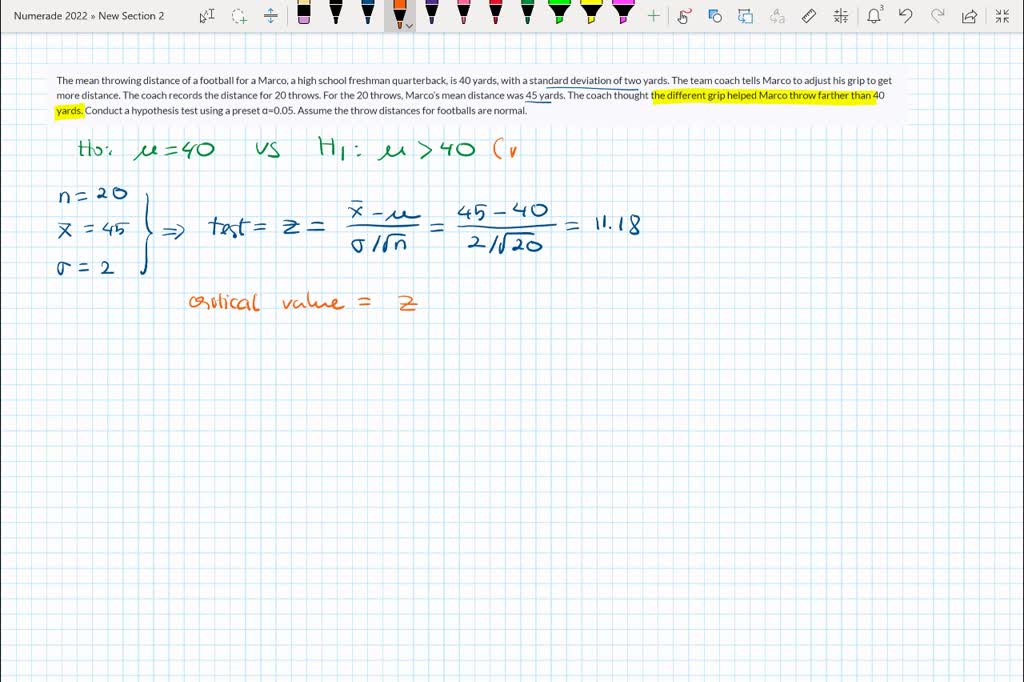 Numerade 2022 » New Section 2
3
The mean throwing distance of a football for a Marco, a high school freshman quarterback, is 40 yards, with a standard deviation of two yards. The team coach tells Marco to adjust his grip to get
more distance. The coach records the distance for 20 throws. For the 20 throws, Marco's mean distance was 45 yards. The coach thought the different grip helped Marco throw farther than 40
yards. Conduct a hypothesis test using a preset α=0.05. Assume the throw distances for footballs are normal.
H0: μ = 40 vs H1: μ > 40 (
n = 20
x̄ = 45
σ = 2
⇒ test = z = (x̄ - μ)/(σ/√n) = (45 - 40)/(2/√20) = 11.18
critical value = z